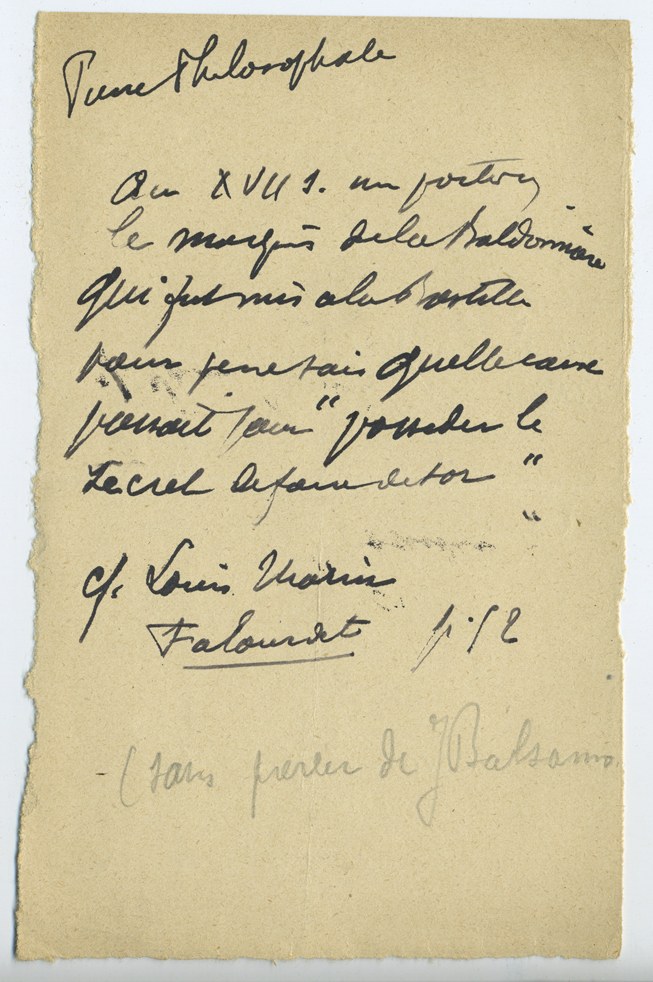 Pierre Philosophale
Au XVII s. un poitevin
le marquis de la Baldonnière
qui fut mis a la Bastille
pour je ne sais quelle cause
passait pour " posseder le
secret de faire de l'or "
"
cf. Louis Morin
Falourdet p. 52
(sans parler de J Balsamo